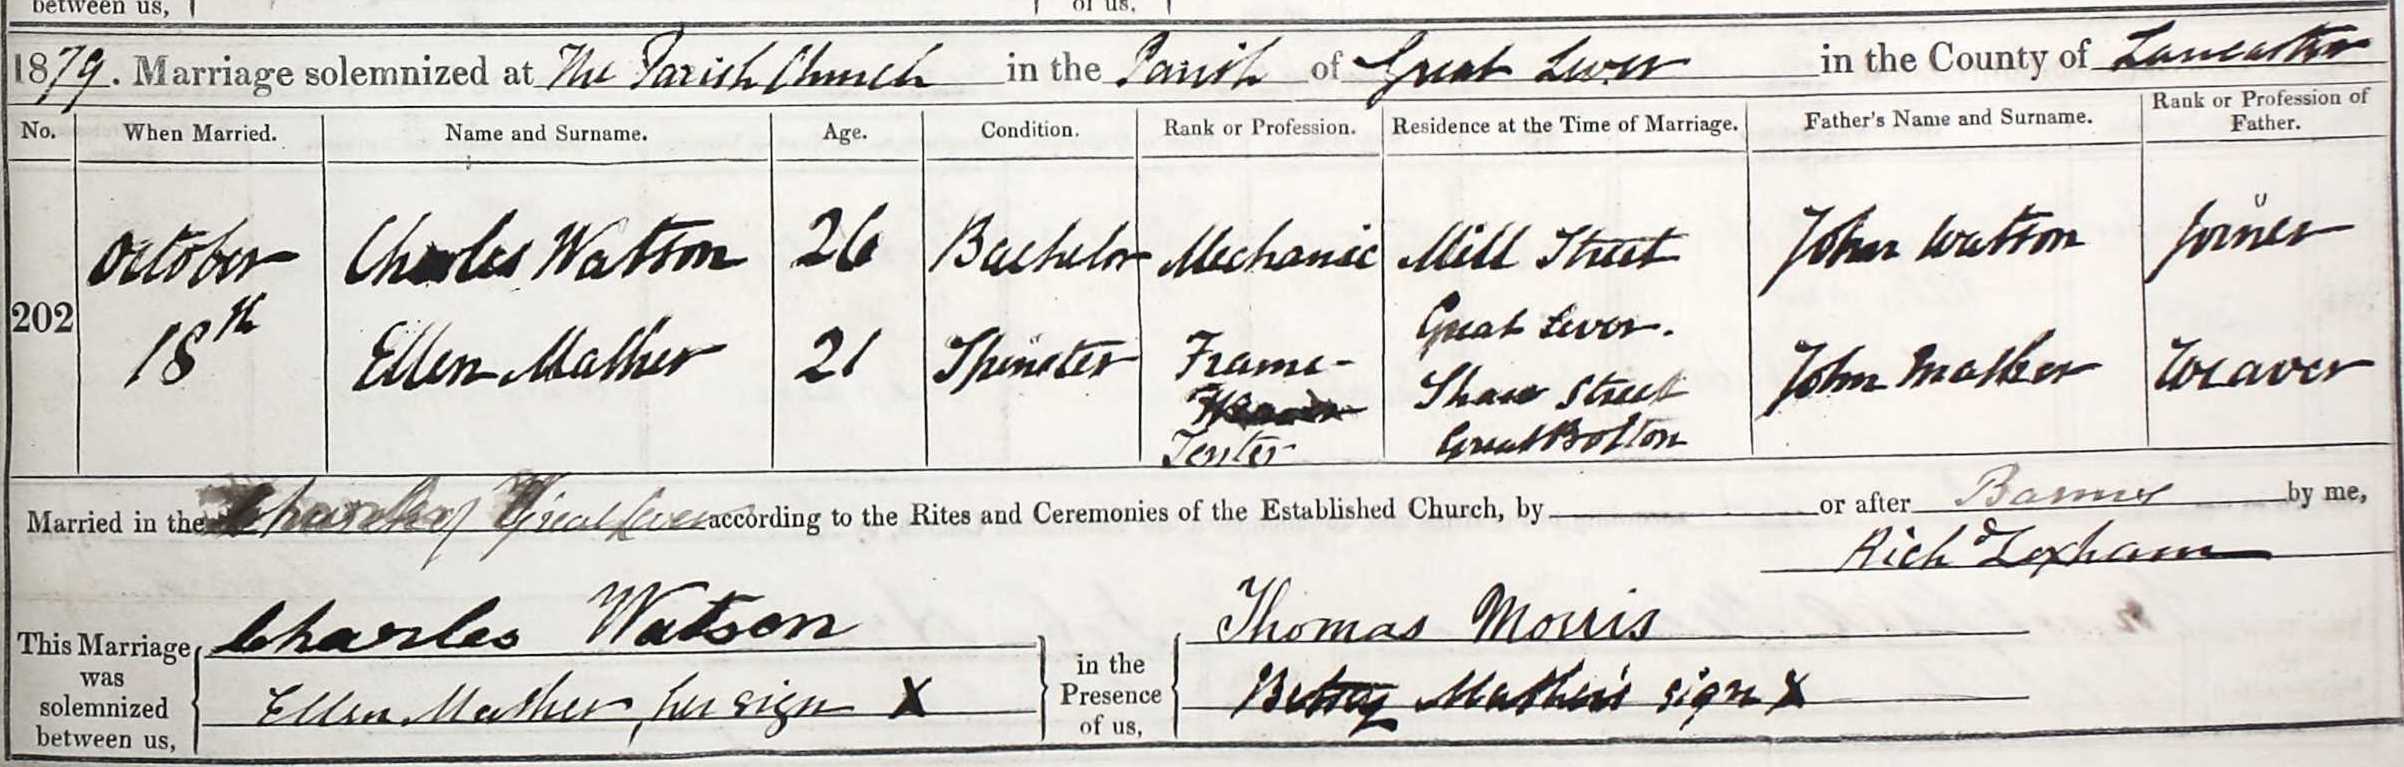 between us,
of us,
1879. Marriage solemnized at The Parish Church in the Parish of Great Lever in the County of Lancaster
No. When Married. Name and Surname. Age. Condition. Rank or Profession. Residence at the Time of Marriage. Father's Name and Surname. Rank or Profession of Father.
October Charles Watson 26 Bachelor Mechanic Mill Street John Watson Joiner
Great Lever.
202 18th Ellen Mather 21 Spinster Frame- Shaw Street John Mather Weaver
Tenter Great Bolton
Married in the Church of Great Lever according to the Rites and Ceremonies of the Established Church, by or after Banns by me,
Richd Loxham
This Marriage was solemnized between us, Charles Watson in the Presence of us, Thomas Morris
Ellen Mather, her sign X Betsy Mather's sign X